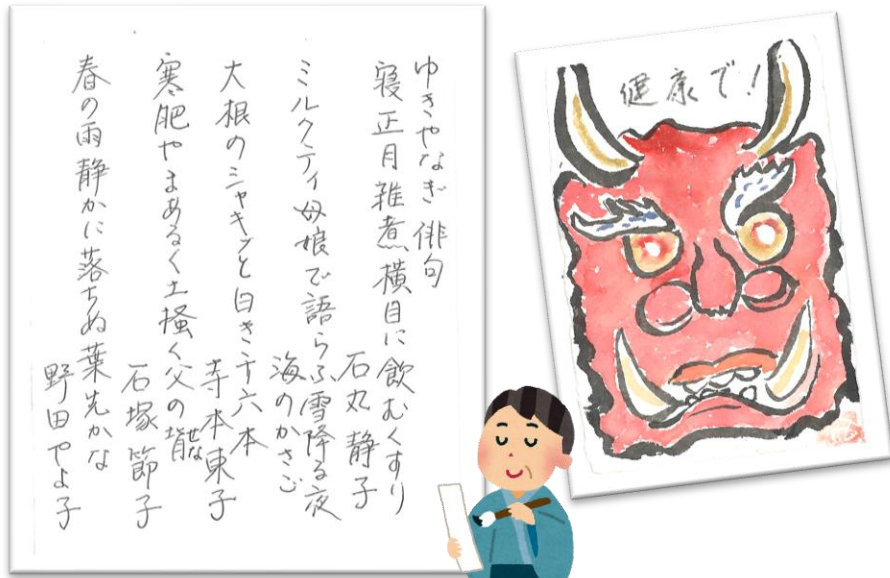 ゆきやなぎ 俳句
寝正月雑煮横目に飲むくすり
石丸 静子
ミルクティ母娘で語らふ雪降る夜
海のかさご
大根のシャキッと白き千六本
寺本東子
寒肥やまあるく土掻く父の背
せな
石塚 節子
春の雨静かに落ちぬ葉先かな
野田やよ子
健康で!